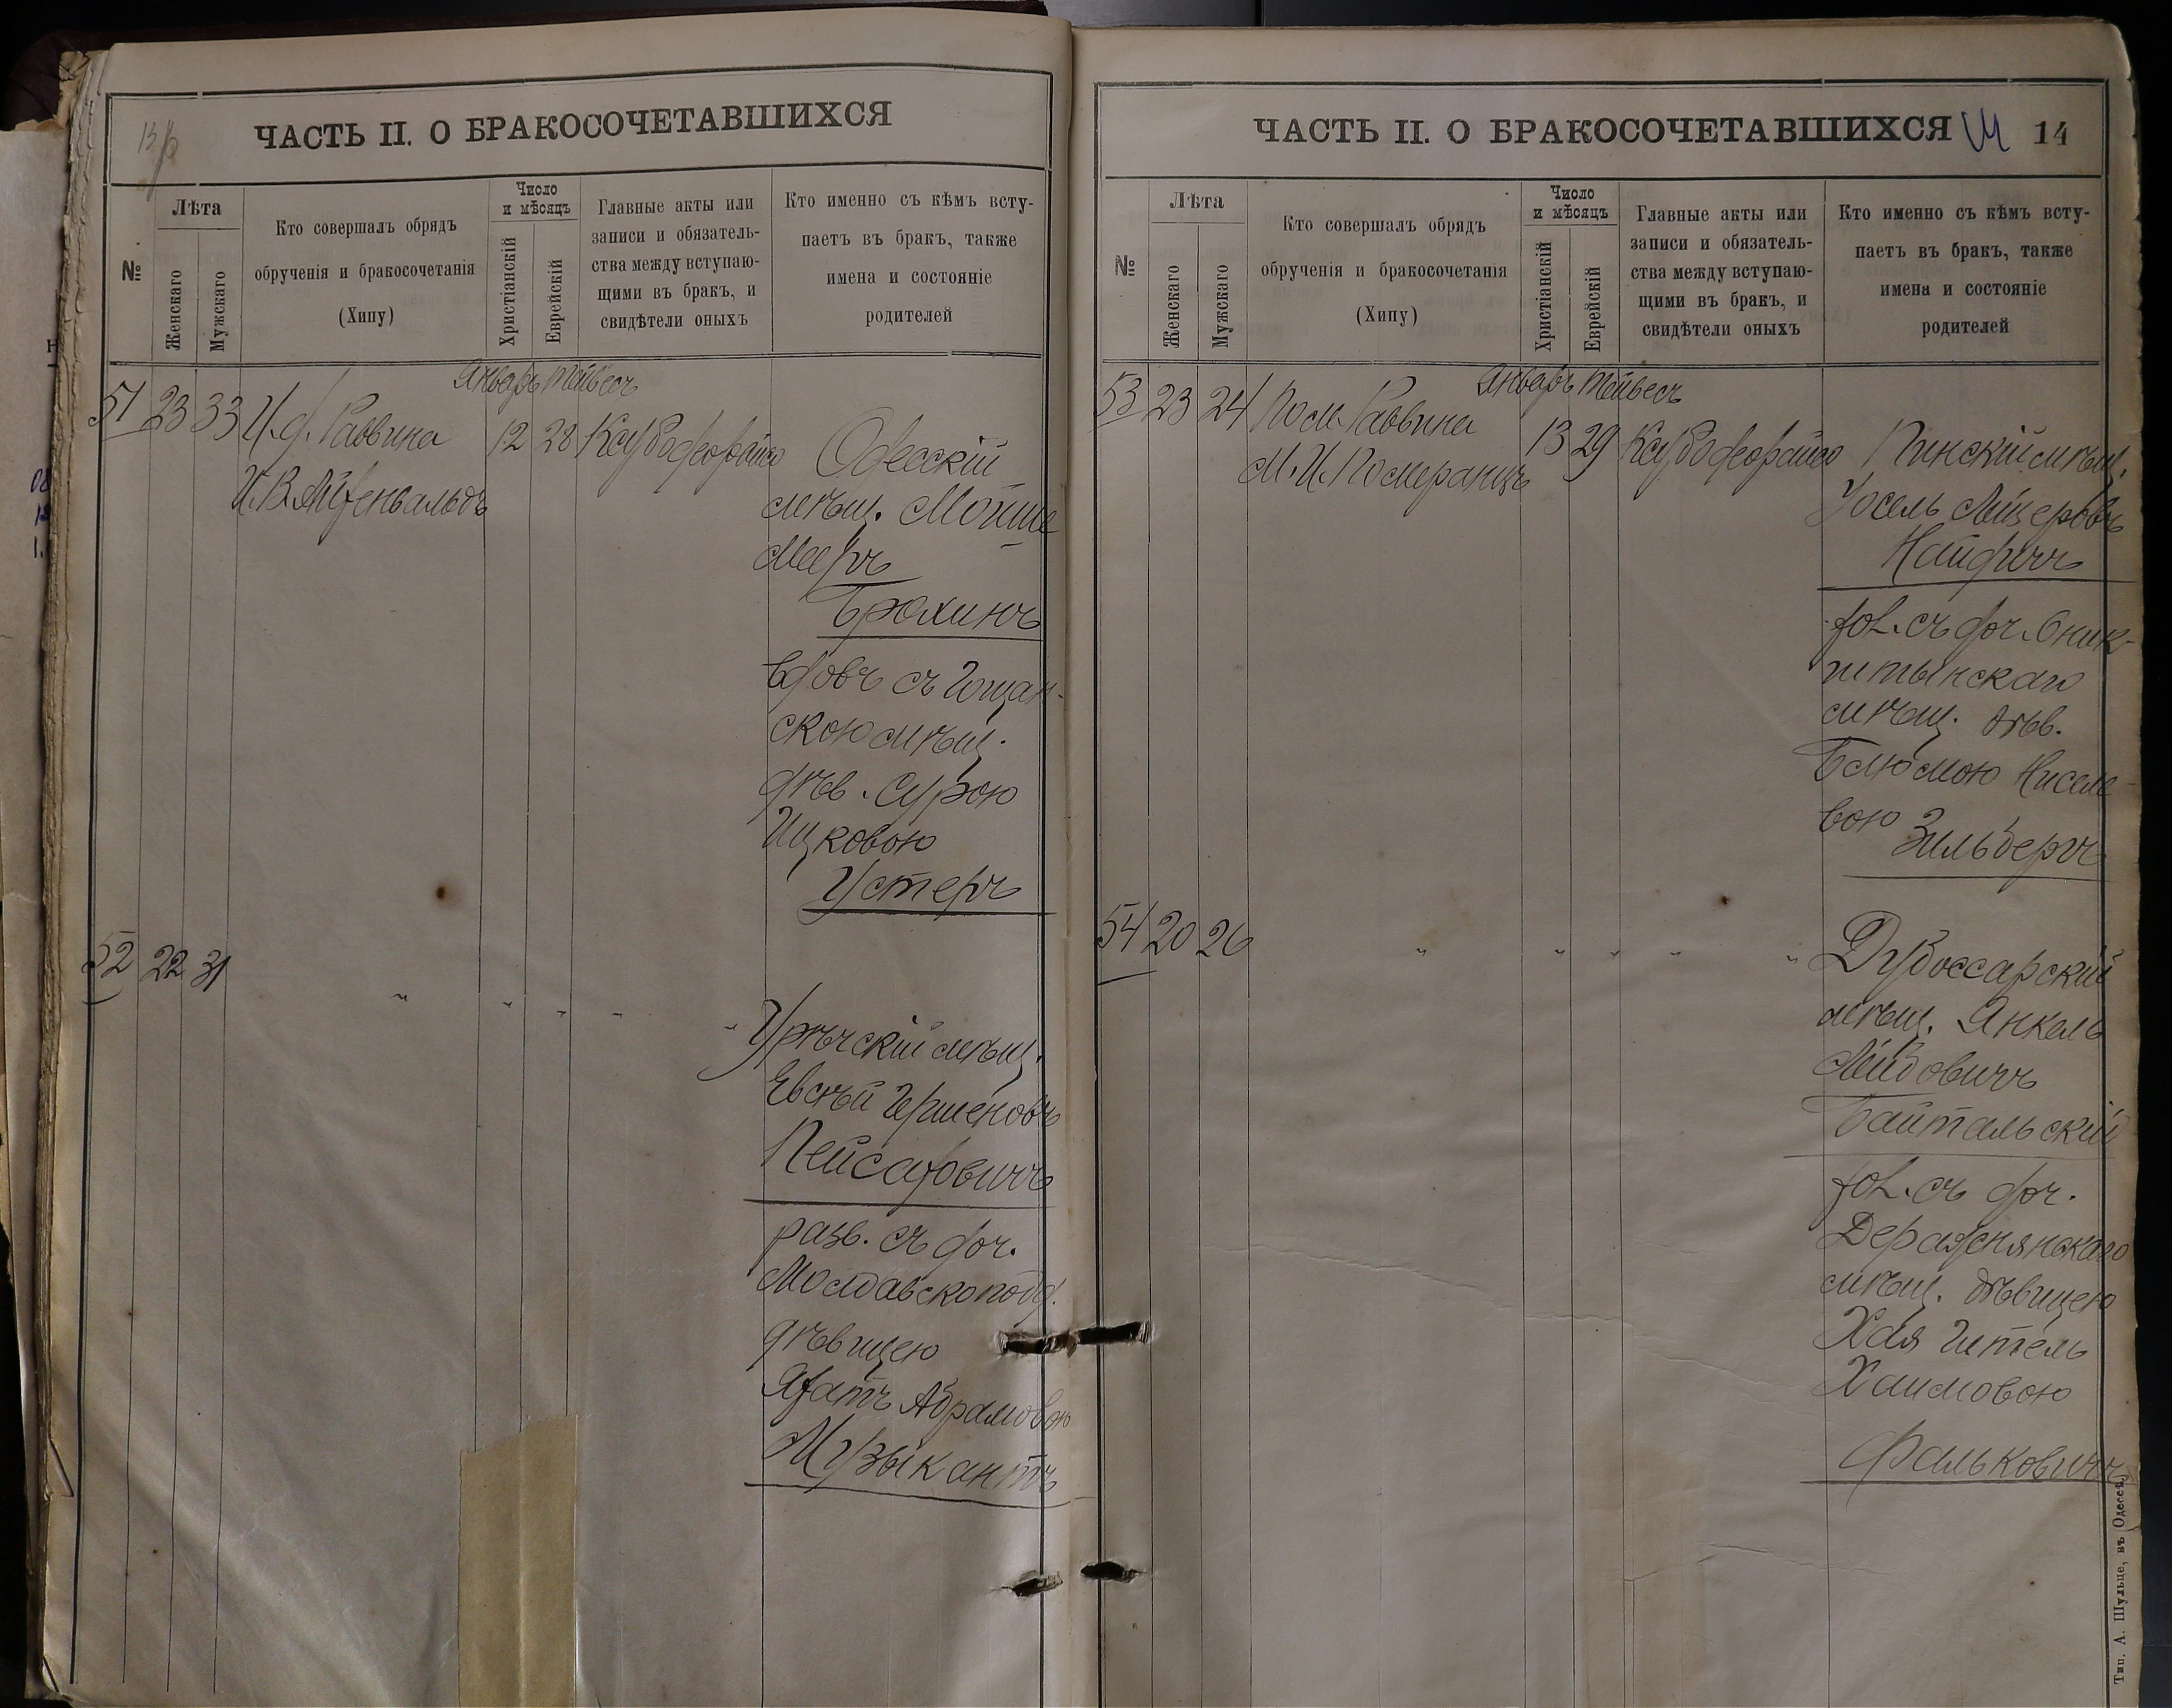 13/б
ЧАСТЬ II. О БРАКОСОЧЕТАВШИХСЯ
№
Лѣта
Женскаго
Мужскаго
Кто совершалъ обрядъ
обрученія и бракосочетанія
(Хипу)
Число
и мѣсяцъ
Христіанскій
Еврейскій
Главные акты или
записи и обязатель-
ства между вступаю-
щими въ бракъ, и
свидѣтели оныхъ
Кто именно съ кѣмъ всту-
паетъ въ бракъ, также
имена и состояніе
родителей
Январь Тейвесъ
51 23 33 И.д. Раввина 12 28
И.В. Айзенвальдъ
Одесскій
мѣщ. Мойше
Мееръ
Брохинъ
вдов съ Гощан-
скою мѣщ.
дѣв. Сурою
Ицковою
Устеръ
52 22 31 " " " " "
Урѣчскій мѣщ.
Евсѣй Гершеновъ
Пейсаховичъ
разв. съ доч.
Молдавскоподд.
дѣвицею
Абрамовою
Музыкантъ
ЧАСТЬ II. О БРАКОСОЧЕТАВШИХСЯ 14
№
Лѣта
Женскаго
Мужскаго
Кто совершалъ обрядъ
обрученія и бракосочетанія
(Хипу)
Число
и мѣсяцъ
Христіанскій
Еврейскій
Главные акты или
записи и обязатель-
ства между вступаю-
щими въ бракъ, и
свидѣтели оныхъ
Кто именно съ кѣмъ всту-
паетъ въ бракъ, также
имена и состояніе
родителей
Январь Тейвесъ
53 23 24 Пом. Раввина 13 29
М.И. Померанцъ
Пинскій мѣщ.
Іосель Лейзеровъ
Найдичъ
хол. съ доч. Оник-
штынскаго
мѣщ. дѣв.
Блюмою Ниселе-
вою
Зильберъ
54 20 26 " " " " "
Дубоссарскій
мѣщ. Янкель
Лейбовичъ
Байтальскій
хол. съ доч.
Деражнянскаго
мѣщ. дѣвицею
Хая Гитель
Хаимовою
Фальковичъ
Тип. А. Шульце, въ Одессѣ.